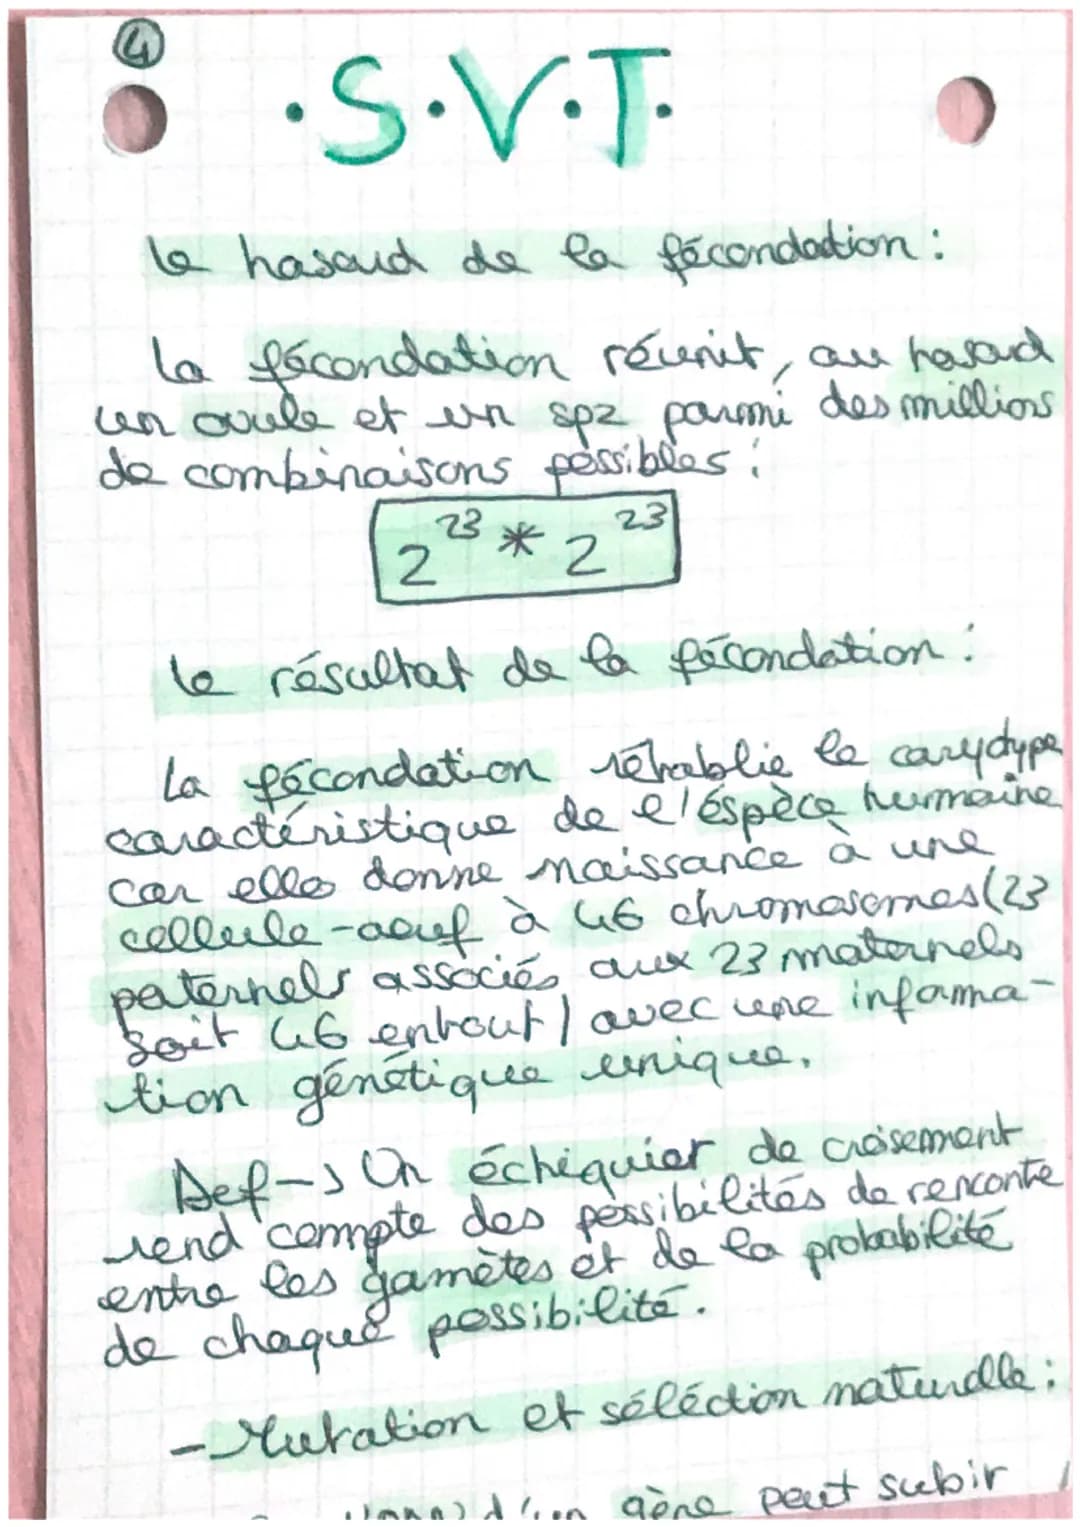 4
·S·V·T·
le hasard de la fécondation :
La fécondation réunit, au hasard
un ovule et un spz parmi des millions
de combinaisons possibles :
2^23 * 2^23
le résultat de la fécondation :
La fécondation rétablie le caryotype
caractéristique de l'éspèce humaine
car elle donne naissance à une
cellule-oeuf à 46 chromosomes (23
paternels associés aux 23 maternels
soit 46 entout) avec une informa-
tion génétique unique.
Def→ Un échiquier de croisement
rend compte des possibilités de rencontre
entre les gamètes et de la probabilité
de chaque possibilité.
- Mutation et séléction naturelle :
d'un gène peut subir